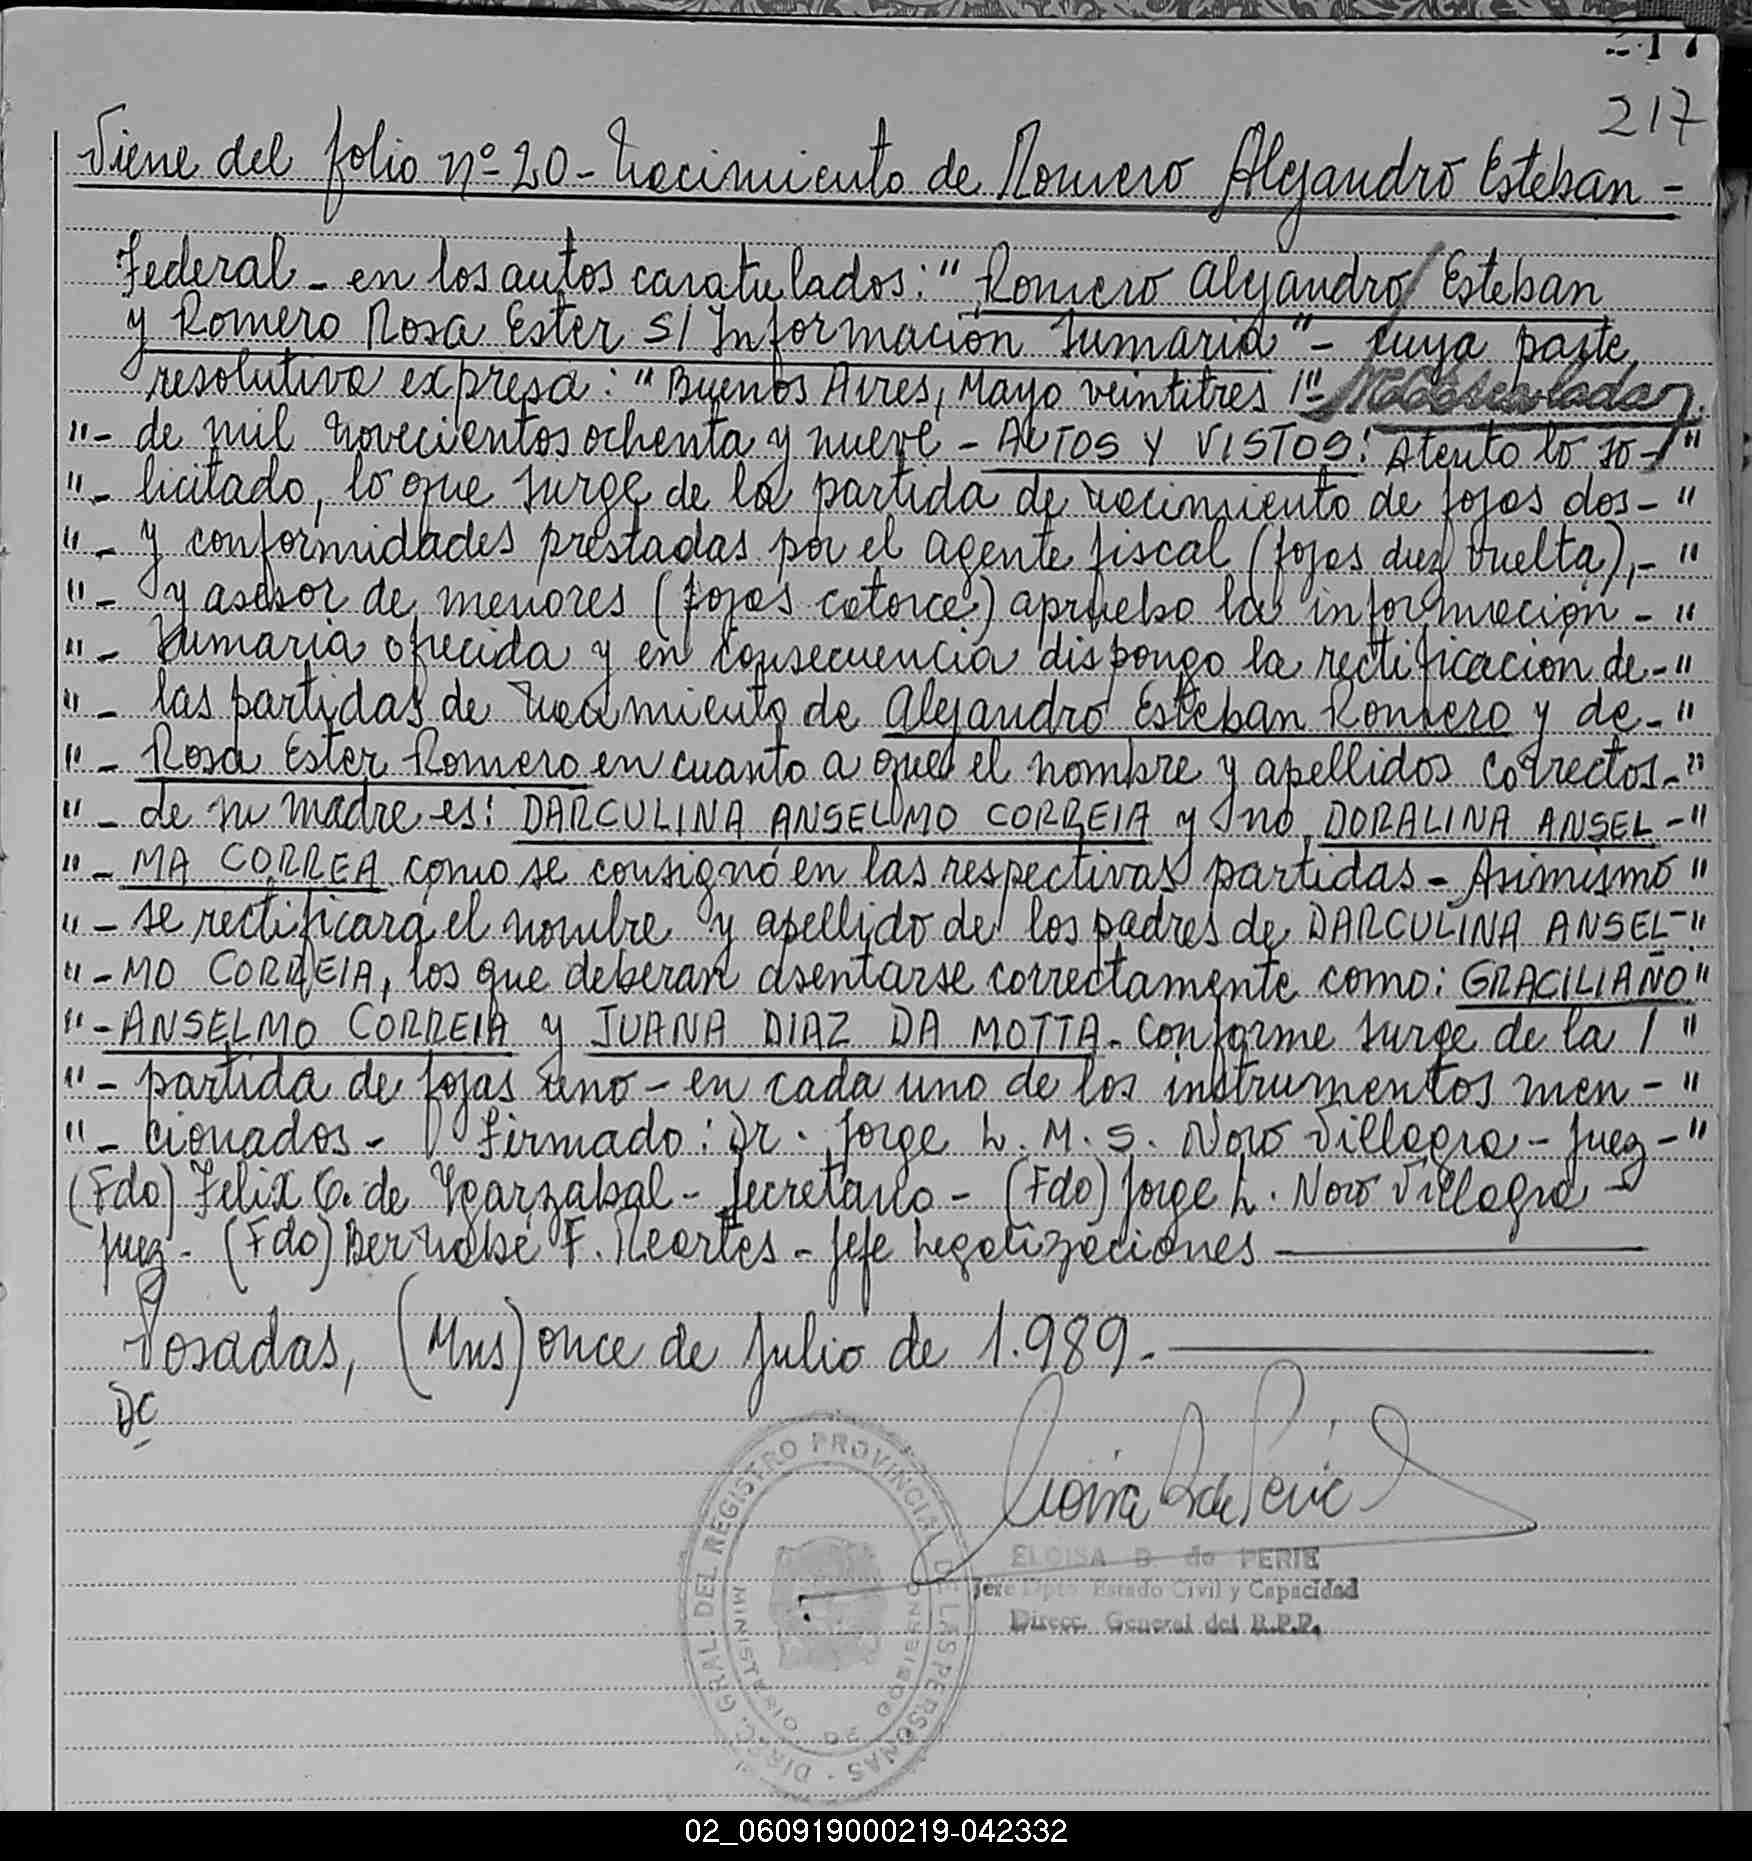 217
217
Viene del folio nº 20 - Nacimiento de Romero Alejandro Esteban -
Federal - en los autos caratulados: " Romero Alejandro Esteban
y Romero Rosa Ester S/ Información Sumaria" - cuya parte
resolutiva expresa: " Buenos Aires, Mayo veintitres /"-
"- de mil novecientos ochenta y nueve - AUTOS Y VISTOS: Atento lo so- "
"- licitado, lo que surge de la partida de nacimiento de fojas dos- "
"- y conformidades prestadas por el agente fiscal (fojas diez vuelta),- "
"- y asesor de menores (fojas catorce) apruebo la información - "
"- Sumaria ofrecida y en consecuencia dispongo la rectificación de- "
"- las partidas de nacimiento de Alejandro Esteban Romero y de- "
"- Rosa Ester Romero en cuanto a que el nombre y apellidos correctos- "
"- de su madre es: DARCULINA ANSELMO CORREIA y no DORALINA ANSEL - "
"- MA CORREA como se consignó en las respectivas partidas - Asimismo "
"- se rectificará el nombre y apellido de los padres de DARCULINA ANSEL- "
"- MO CORREIA, los que deberan asentarse correctamente como: GRACILIANO "
"- ANSELMO CORREIA y JUANA DIAZ DA MOTTA - Conforme surge de la / "
"- partida de fojas uno - en cada uno de los instrumentos men - "
"- cionados - Firmado: Dr. Jorge L. M. S. Noro Villagra - Juez - "
(Fdo) Felix G. de Igarzabal - Secretario - (Fdo) Jorge L. Noro Villagra -
Juez - (Fdo) Bernabé F. Reartes - Jefe Legalizaciones
Posadas, (Mns) once de Julio de 1.989 -
DC
DIREC. GRAL. DEL REGISTRO PROVINCIAL DE LAS PERSONAS
MINISTERIO DE GOBIERNO
ELOISA B. de PERIE
Jefe Dpto. Estado Civil y Capacidad
Direcc. General del R.P.P.
02_060919000219-042332